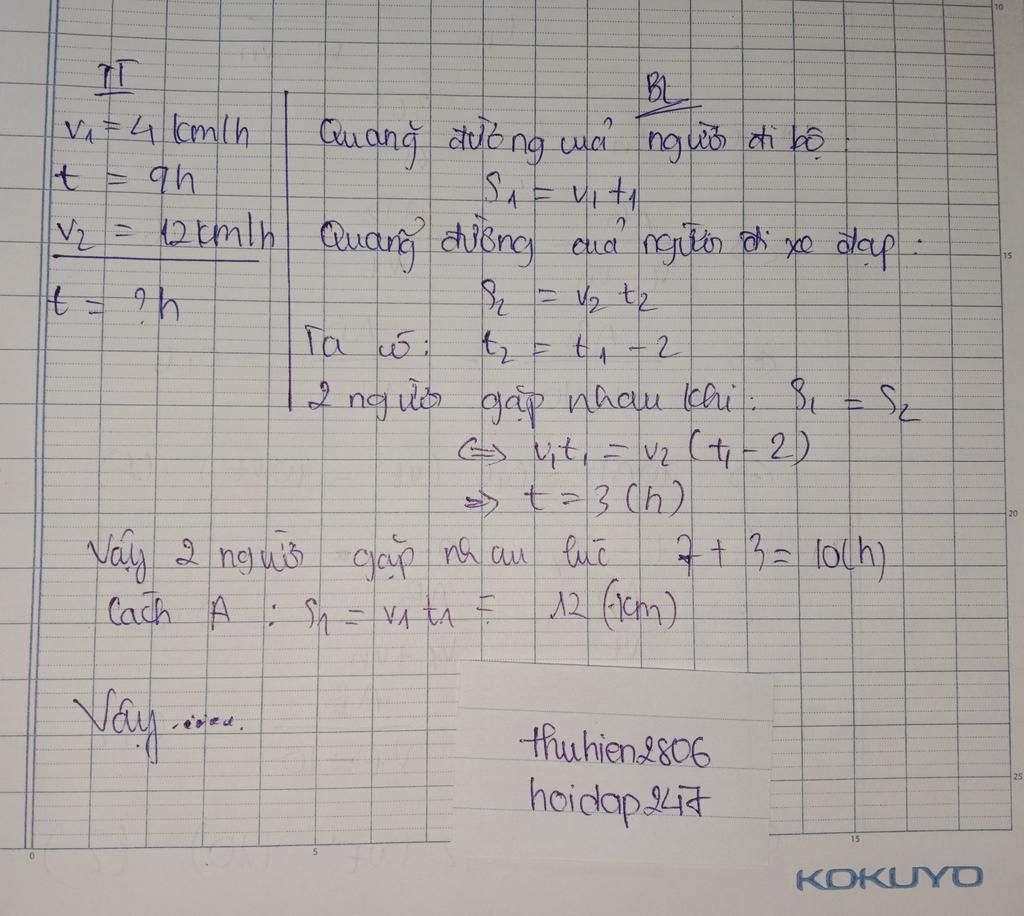 TT
v₁ = 4 km/h
t = 9h
v₂ = 12 km/h
t = ? h
BL
Quãng đường của người đi bộ :
S₁ = v₁ t₁
Quãng đường của người đi xe đạp :
S₂ = v₂ t₂
Ta có : t₂ = t₁ - 2
2 người gặp nhau khi : S₁ = S₂
⇔ v₁t₁ = v₂ (t₁ - 2)
⇒ t = 3 (h)
Vậy 2 người gặp nhau lúc 7 + 3 = 10(h)
Cách A : S₁ = v₁ t₁ = 12 (km)
Vậy .....
thuhien2806
hoidap247
KOKUYO
10
15
20
25
0
5
15